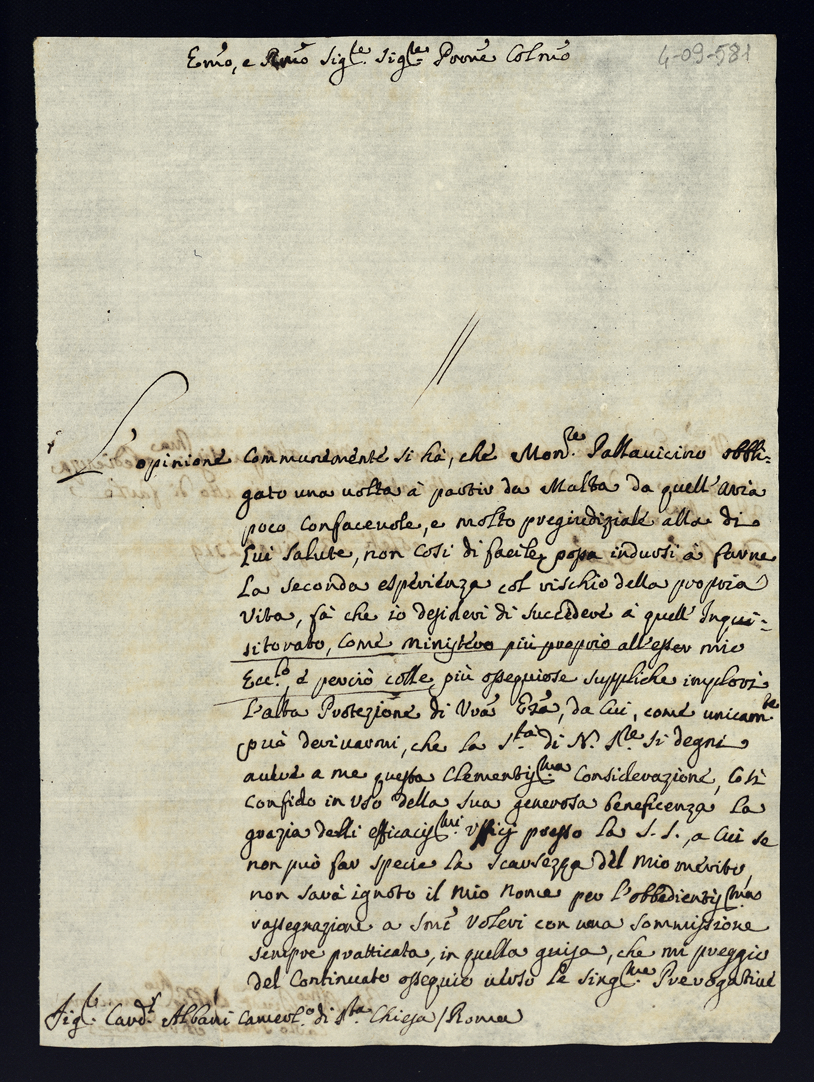 Emo, e Rmo Sigre Sigre Prone Colmo
4-09-581
L'opinione communemente si hà, che Monre Pallavicino obbli-
gato una volta à partir da Malta da quell'aria
poco confacevole, e molto pregiudiziale alla di
lui salute, non così di facile possa indursi à farne
la seconda esperienza col rischio della propria
vita, fà che io desideri di succedere à quell'Inqui-
sitorato, come ministero più proprio all'esser mio
Ecclo, e perciò colle più ossequiose suppliche implori
l'alta Protezione di Vra Emza, da cui, come unicamte
può derivarmi, che la Sta di N. Sre si degni
avere a me questa clementissma considerazione, così
confido in uso della sua generosa beneficenza la
grazia delli efficacissmi ufficj presso la S. S., a cui se
non può far specie la scarsezza del mio merito,
non sarà ignoto il mio nome per l'obbedientissma
rassegnazione a Smi voleri con una sommissione
sempre pratticata, in quella guisa, che mi preggio
del continuato ossequio verso le singme Prerogative
Sigr Cardl Albani Camerlo di Sta Chiesa / Roma